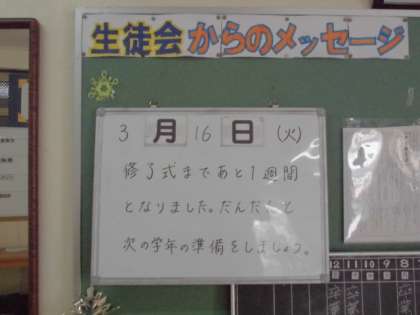 生徒会からのメッセージ
3月16日(火)
修了式まであと1週間
となりました。だんだんと
次の学年の準備をしましょう。
12 11 10 9 8